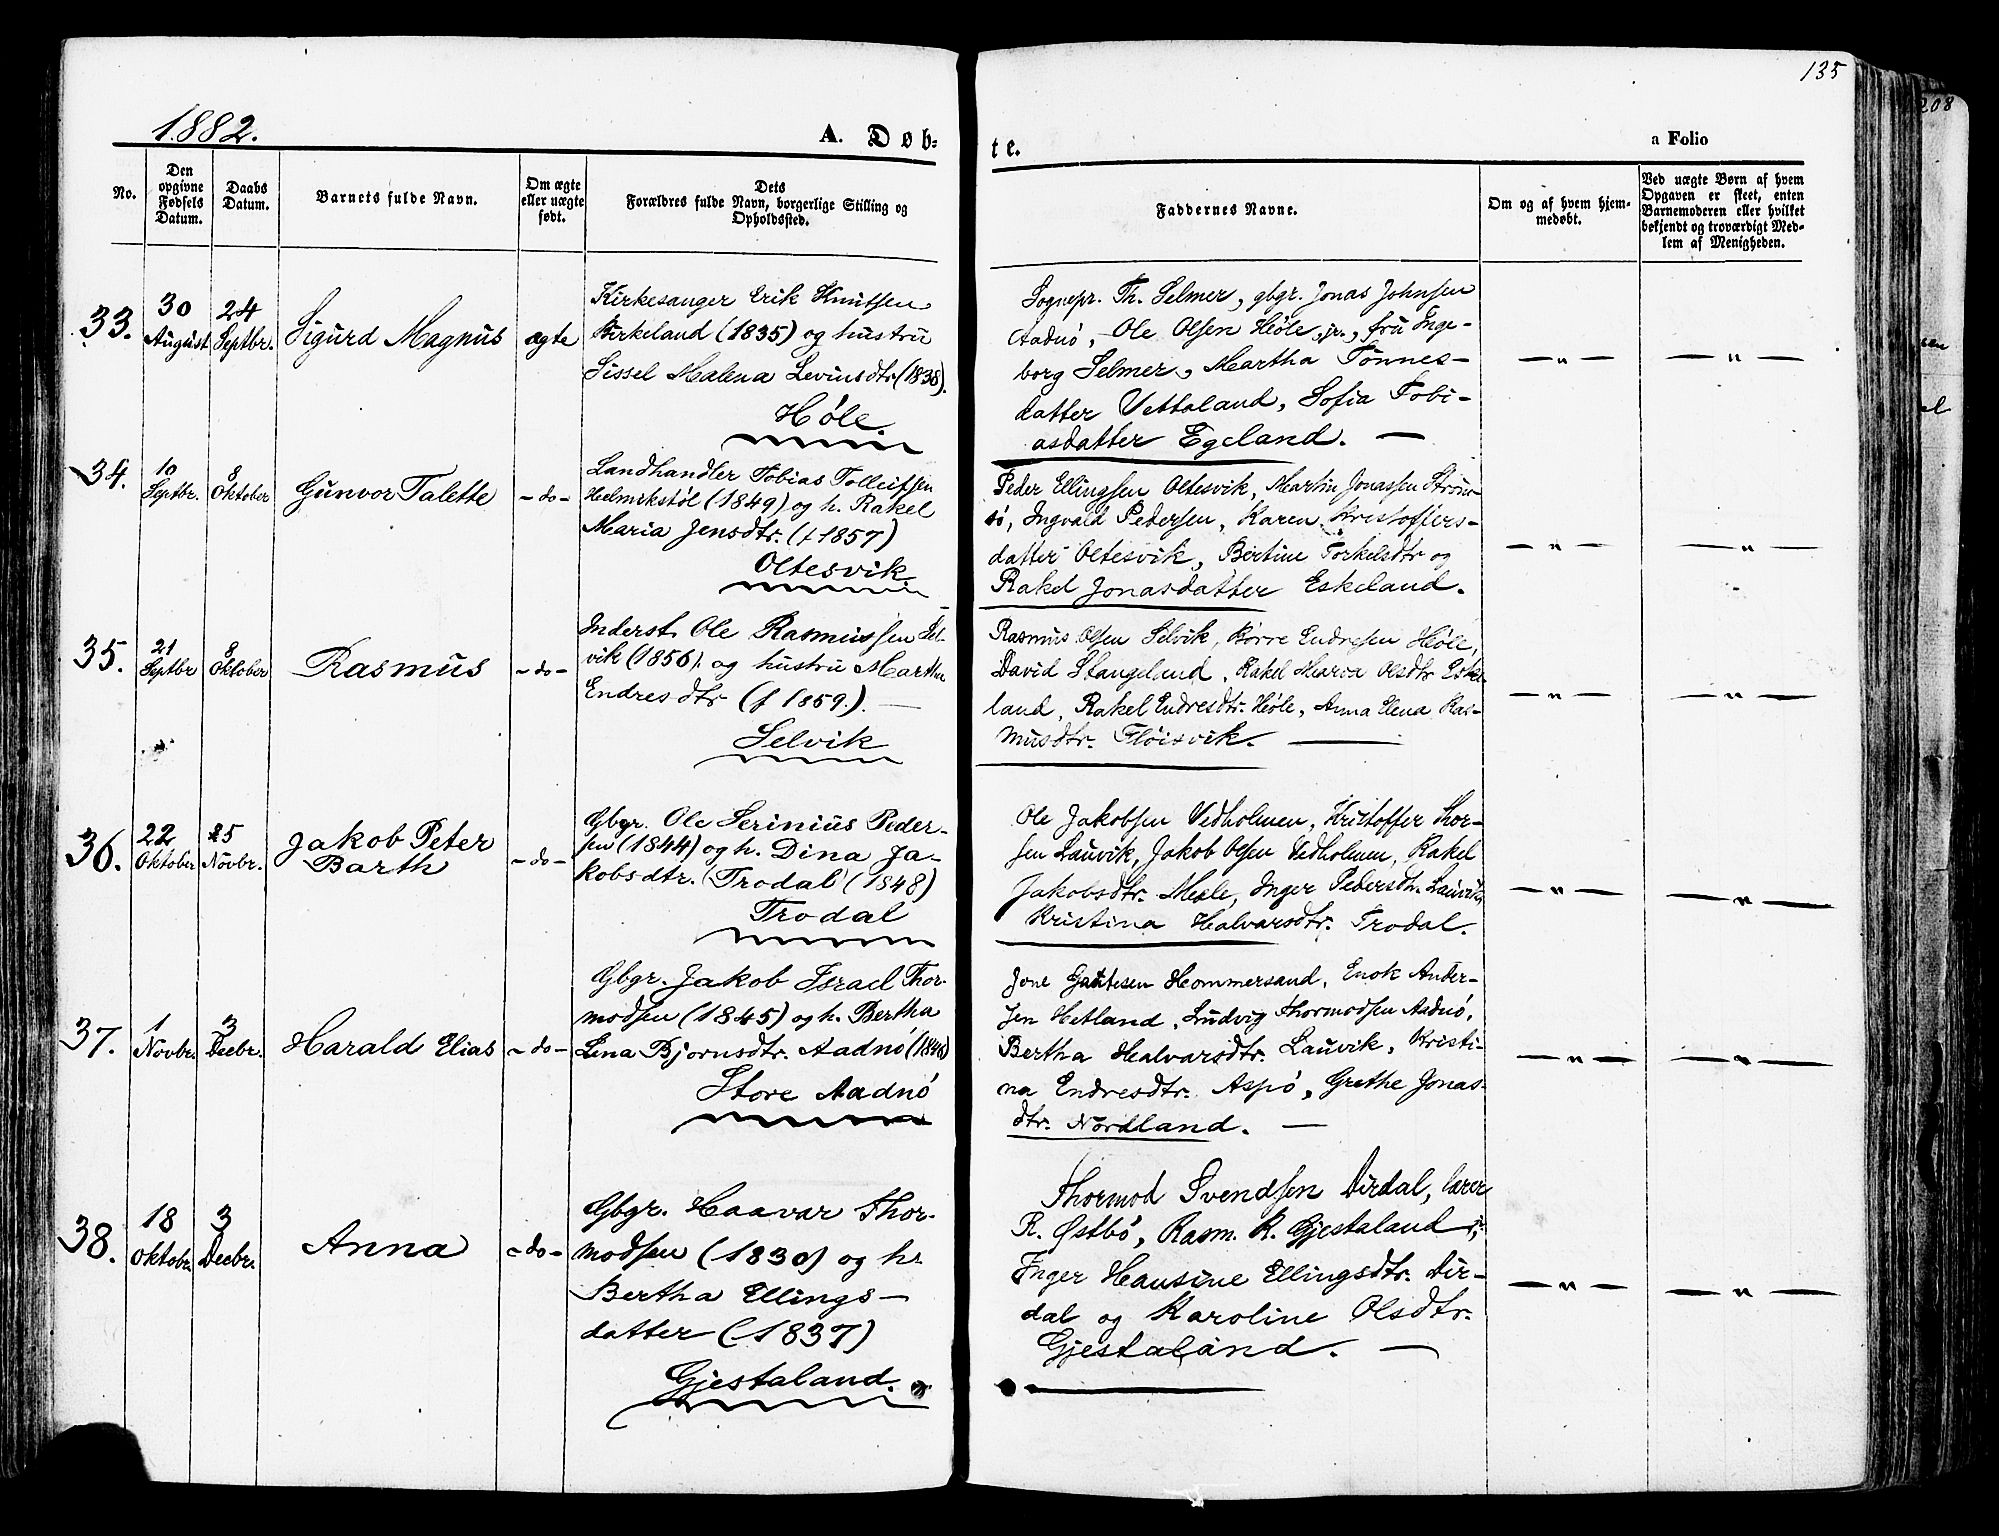 135
208
1882.
A. Døb-
te.
a Folio
No.
Den opgivne Fødsels Datum.
Daabs Datum.
Barnets fulde Navn.
Om ægte eller uægte født.
Dets Forældres fulde Navn, borgerlige Stilling og Opholdssted.
Faddernes Navne.
Om og af hvem hjemmedøbt.
Ved uægte Børn af hvem Opgaven er skeet, enten Barnemoderen eller hvilket bekjendt og troværdigt Medlem af Menigheden.
33.
30 August
24 Septbr.
Sigurd Magnus
ægte
Kirkesanger Erik Knutsen
Birkeland (1835) og hustru
Sissel Malena Leviusdtr (1838).
Høle.
Sognepr. Th. Selmer, gbgr. Jonas Johnsen
Aadnø, Ole Olsen Høle, jr., fru Inge-
borg Selmer, Martha Tønnes-
datter Vettaland, Sofia Tobi-
asdatter Egeland. —
— " —
— " —
34.
10 Septbr.
8 Oktober
Gunvor Talette
- do -
Landhandler Tobias Tolleifsen
Helmikstøl (1849) og h. Rakel
Maria Jensdtr. (f 1857)
Oltesvik.
Peder Ellingsen Oltesvik, Martin Jonassen Strøm-
sø, Ingvald Pedersen, Karen Kristoffers-
datter Oltesvik, Bertine Torkelsdtr og
Rakel Jonasdatter Eskeland.
— " —
— " —
35.
21 Septbr
8 Oktober
Rasmus
- do -
Inderst Ole Rasmussen Sel-
vik (1856). og hustru Martha
Endresdtr (f 1859.). —
Selvik
Rasmus Olsen Selvik, Børre Endresen Høle,
David Stangeland, Rakel Maria Olsdtr Eske-
land, Rakel Endresdtr. Høle, Anna Elena Ras-
musdtr. Fløisvik. —
— " —
— " —
36.
22 Oktober
25 Novbr.
Jakob Peter
Barth
- do -
Gbgr. Ole Serinius Peder-
sen (1844) og h. Dina Ja-
kobsdtr. Trodal (1848)
Trodal
Ole Jakobsen Vedholmen, Kristoffer Thor-
sen Lauvik, Jakob Olsen Vedholmen, Rakel
Jakobsdtr. Mesle, Inger Pedersdtr. Lauvik,
Kristina Halvarsdtr. Trodal.
— " —
— " —
37.
1 Novbr.
3 Decbr.
Harald Elias
- do -
Gbgr. Jakob Israel Thor-
modsen (1845) og h. Bertha
Lena Bjørnsdtr. Aadnø (1848)
Store Aadnø
Jone Gautesen Hommersand, Enok Ander-
sen Hetland, Ludvig Thormodsen Aadnø,
Bertha Halvarsdtr. Lauvik, Kristi-
na Endresdtr. Aspø, Grethe Jonas-
dtr. Nordland. —
— " —
— " —
38.
18 Oktobr.
3 Decbr.
Anna
- do -
Gbgr. Haavar Thor-
modsen (1830) og h.
Bertha Ellings-
datter (1837)
Gjestaland.
Thormod Svendsen Dirdal, lærer
R. Østbø, Rasm. R. Gjestaland jr.
Inger Hansine Ellingsdtr. Dir-
dal og Karoline Olsdtr.
Gjestaland. —
— " —
— " —